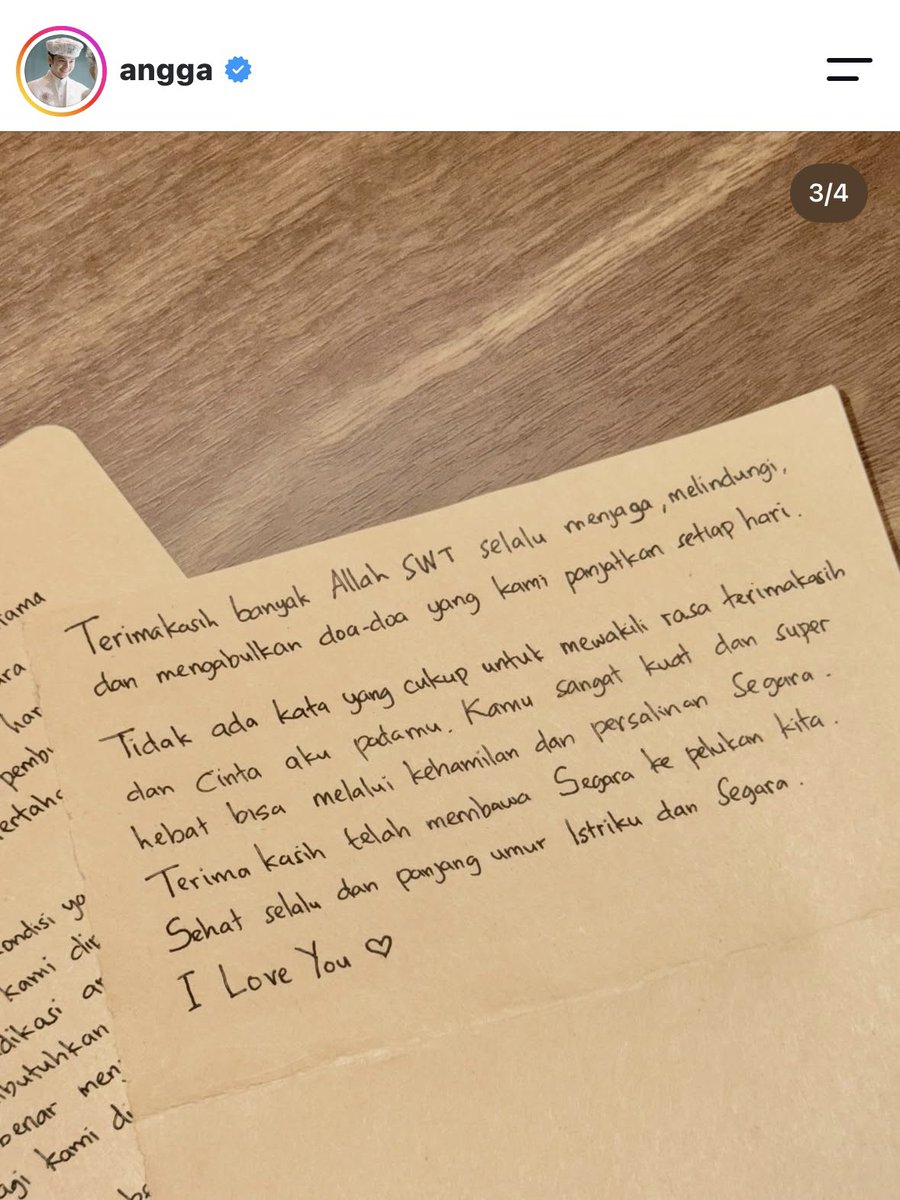 angga
3/4
Terimakasih banyak Allah SWT selalu menjaga, melindungi,
dan mengabulkan doa-doa yang kami panjatkan setiap hari.
Tidak ada kata yang cukup untuk mewakili rasa terimakasih
dan Cinta aku padamu. Kamu sangat kuat dan super
hebat bisa melalui kehamilan dan persalinan Segara.
Terima kasih telah membawa Segara ke pelukan kita.
Sehat selalu dan panjang umur Istriku dan Segara.
I Love You ♡
ara
har
pemb
ertaha
ondisi ya
kami dir
dikasi ar
butuhkan
benar men
agi kami di